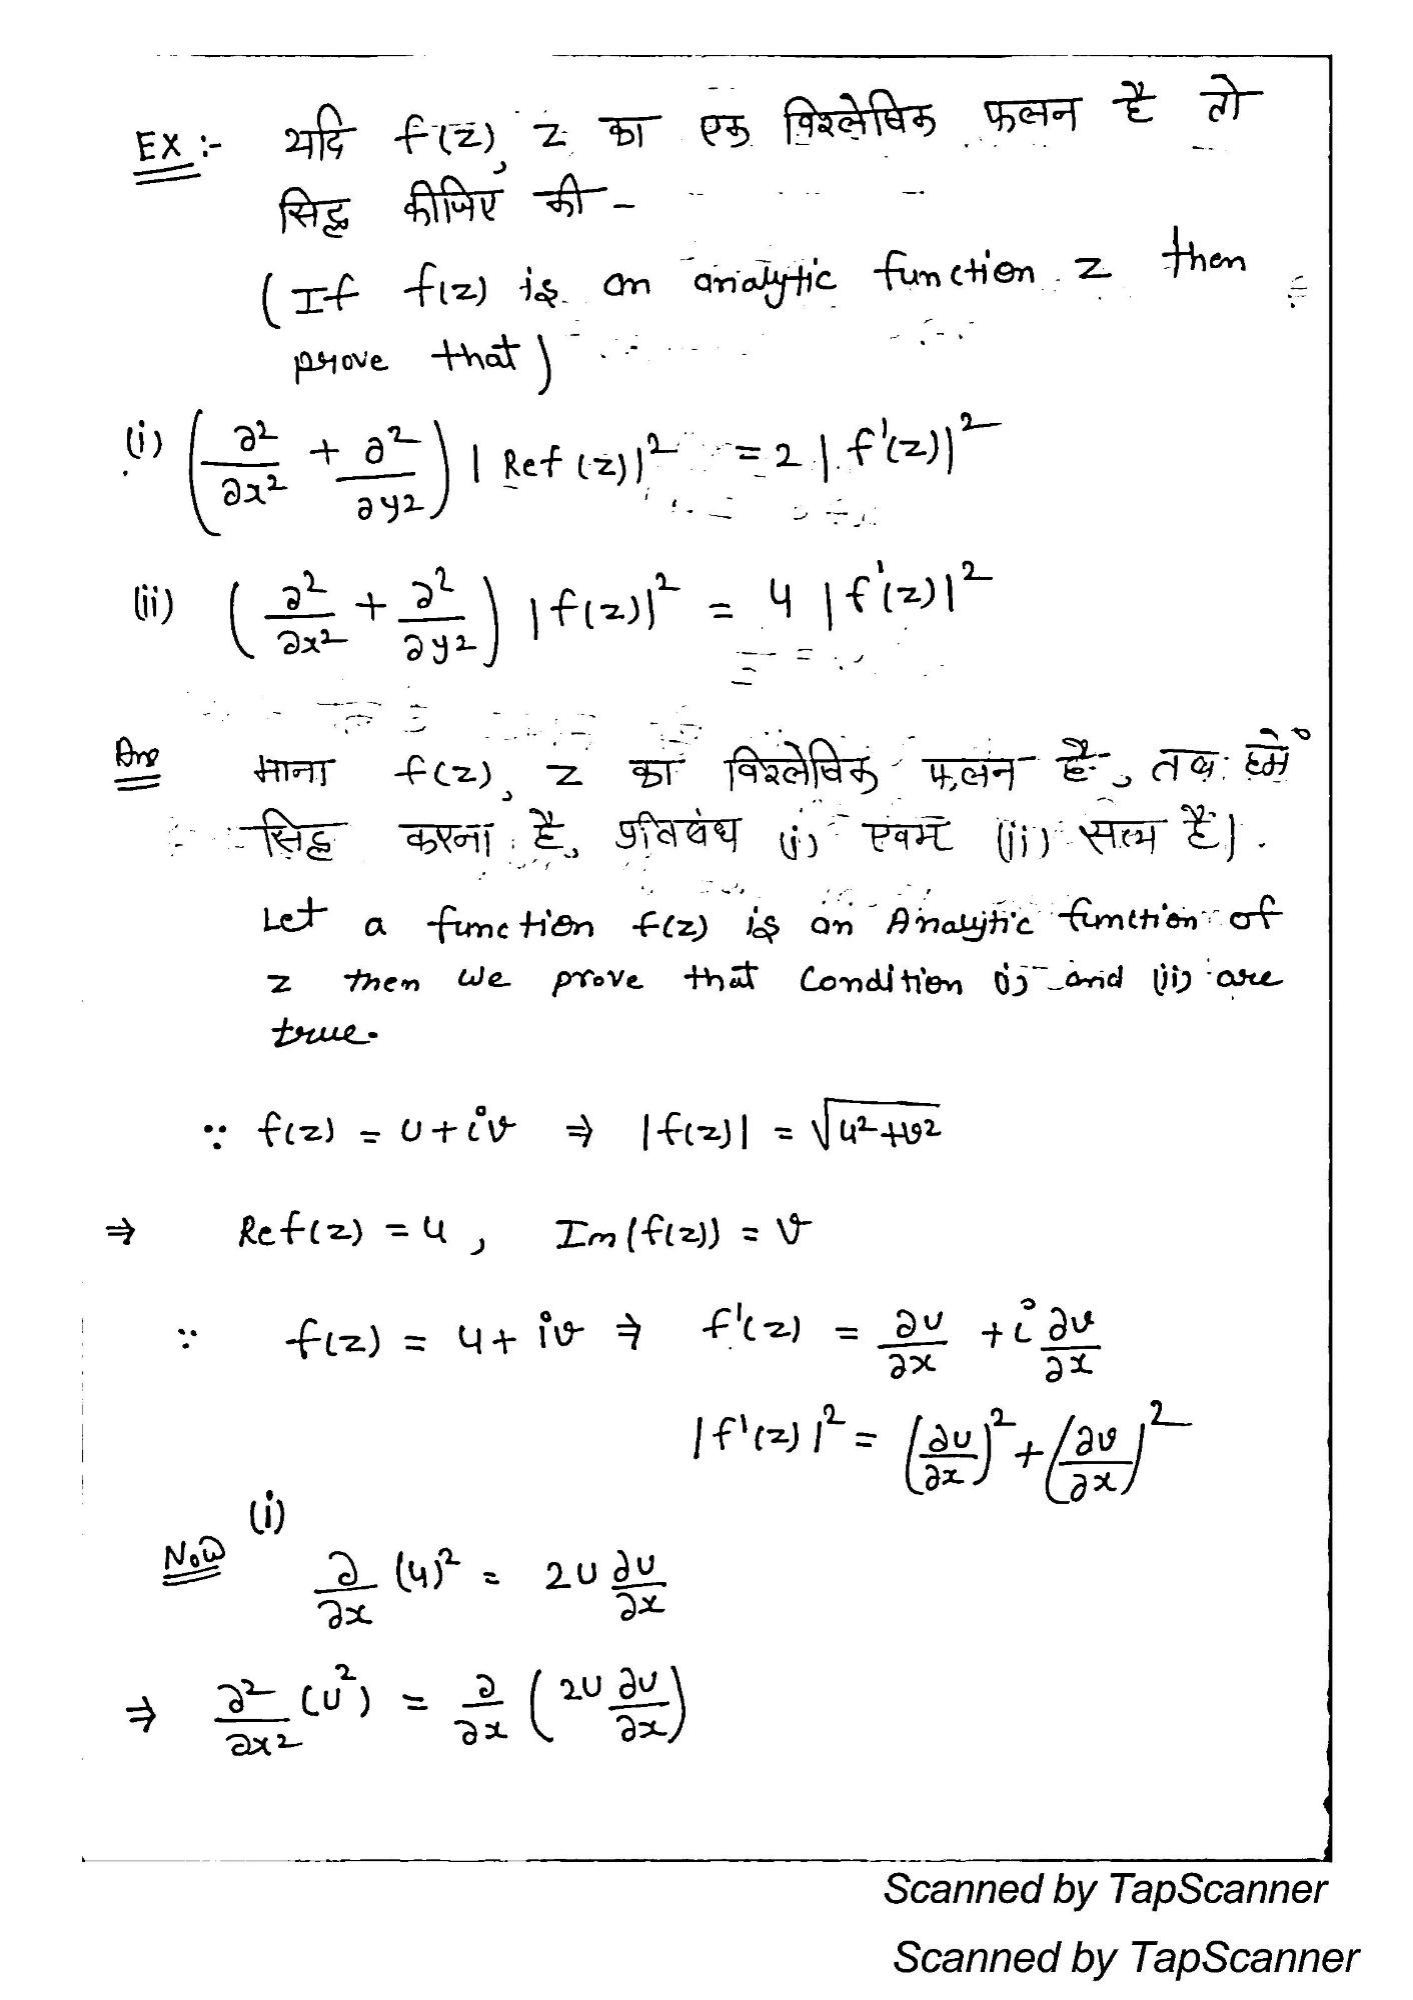 EX :- यदि f(z), z का एक विश्लेषिक फलन है तो
सिद्ध कीजिए की -
(If f(z) is an analytic function z then
prove that)
(i) (∂²/∂x² + ∂²/∂y²) |Ref(z)|² = 2 |f'(z)|²
(ii) (∂²/∂x² + ∂²/∂y²) |f(z)|² = 4 |f'(z)|²
Ans माना f(z), z का विश्लेषिक फलन है, तब हमें
सिद्ध करना है, प्रतिबंध (i) एवम (ii) सत्य है|.
Let a function f(z) is an Analytic function of
z then we prove that Condition (i) and (ii) are
true.
∵ f(z) = u+iv ⇒ |f(z)| = √(u²+v²)
⇒ Ref(z) = u, Im(f(z)) = v
∵ f(z) = u+iv ⇒ f'(z) = ∂u/∂x + i ∂v/∂x
|f'(z)|² = (∂u/∂x)² + (∂v/∂x)²
(i)
Now ∂/∂x (u)² = 2u ∂u/∂x
⇒ ∂²/∂x² (u²) = ∂/∂x (2u ∂u/∂x)
Scanned by TapScanner
Scanned by TapScanner